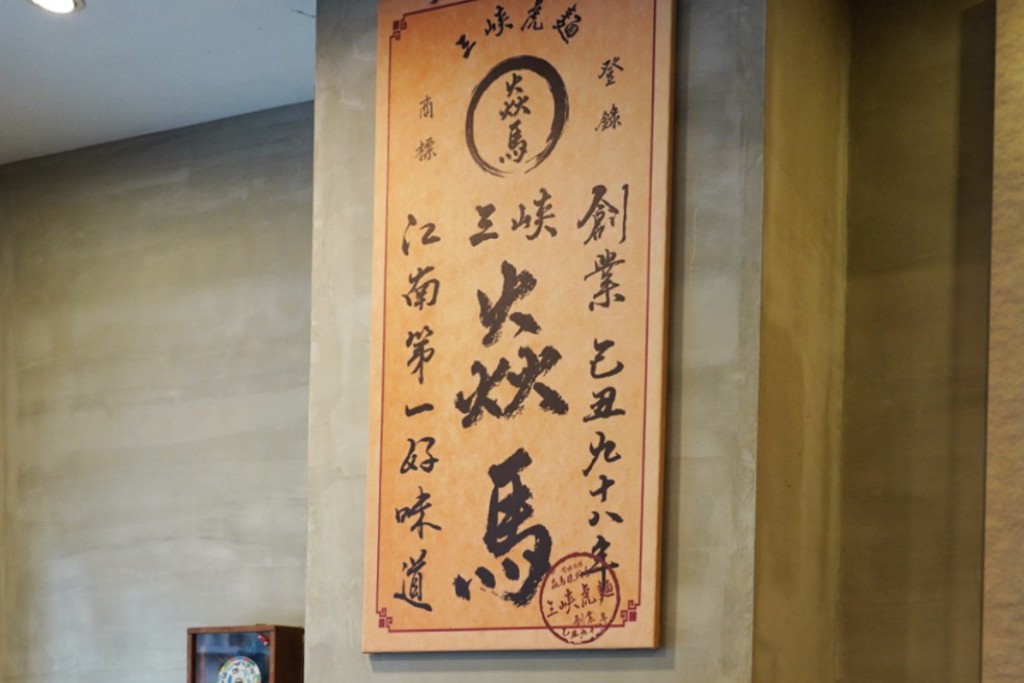 三峽虎麵
登錄
焱馬
商標
創業己丑九十八年
三峽
焱馬
江南第一好味道
三峽虎麵
創業